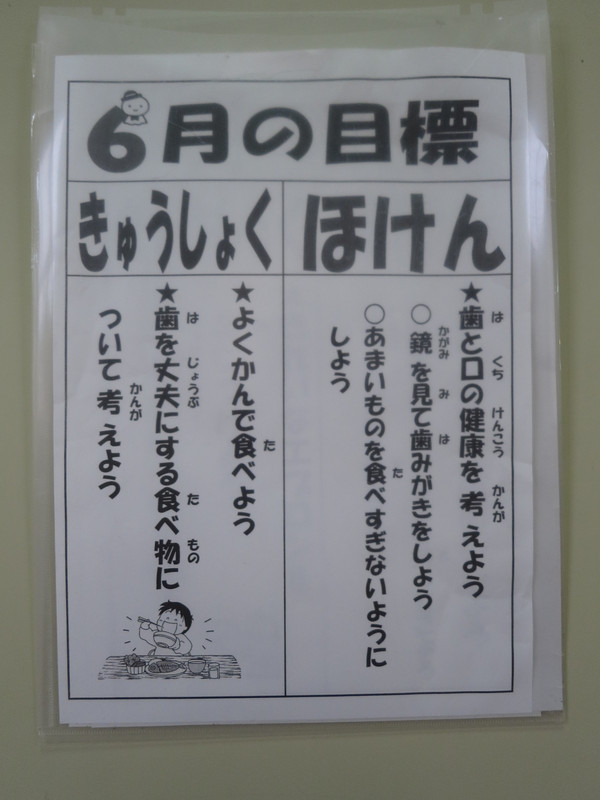 6月の目標
ほけん
★歯と口の健康を考えよう
○鏡を見て歯みがきをしよう
○あまいものを食べすぎないように
しよう
きゅうしょく
★よくかんで食べよう
★歯を丈夫にする食べ物に
ついて考えよう